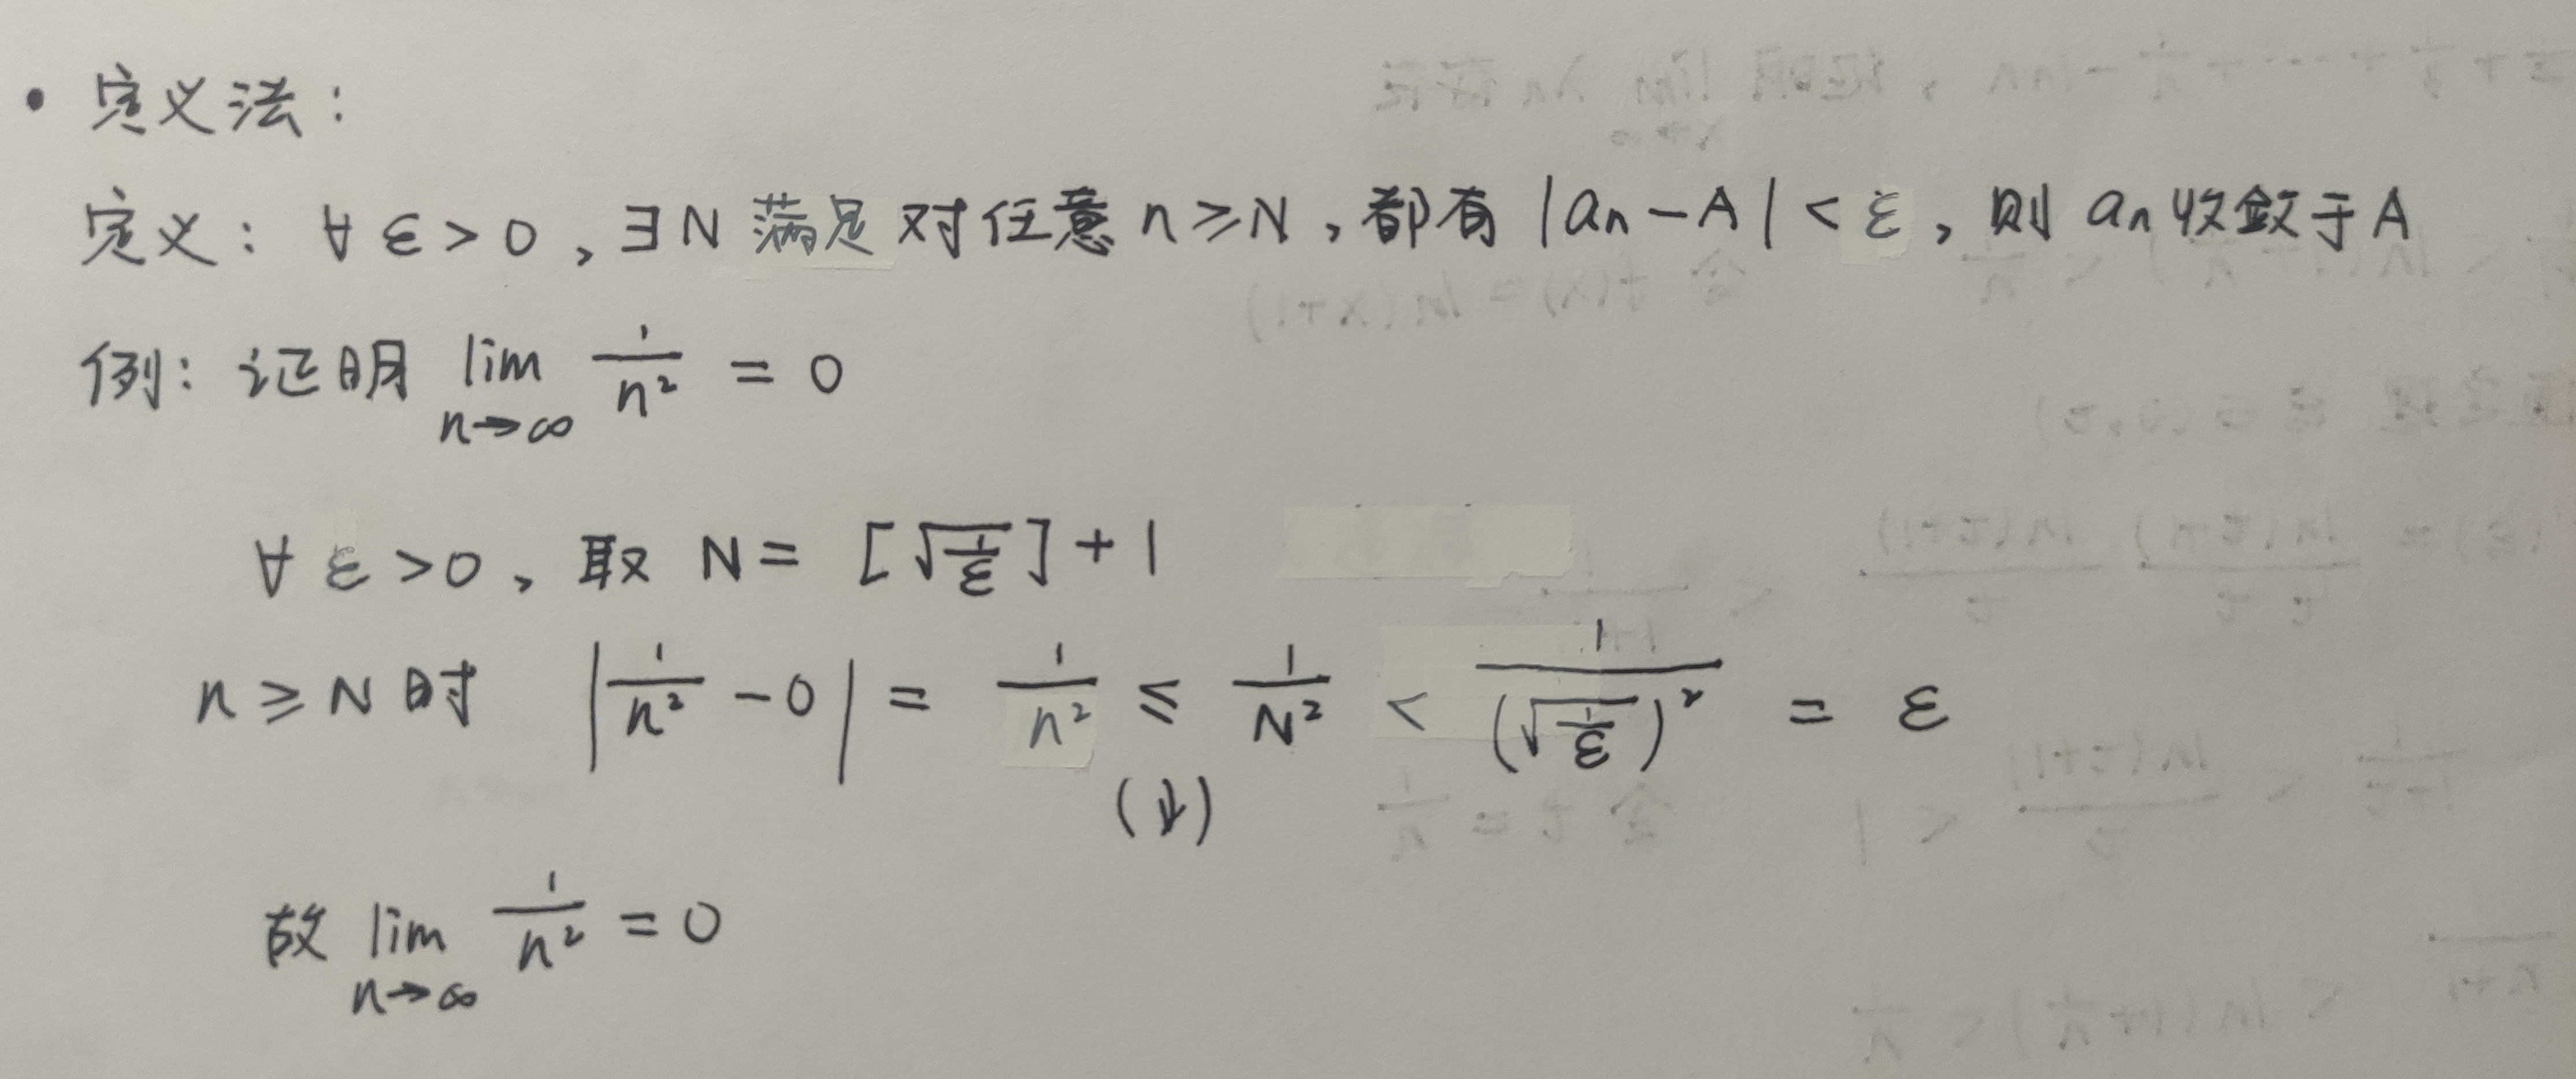 • 定义法：
定义：∀ ε > 0，∃ N 满足对任意 n ≥ N，都有 |aₙ − A| < ε，则 aₙ 收敛于 A
例：证明 lim_{n→∞} 1/n² = 0
∀ ε > 0，取 N = [√(1/ε)] + 1
n ≥ N 时 |1/n² − 0| = 1/n² ≤ 1/N² < 1/(√(1/ε))² = ε
(↓)
故 lim_{n→∞} 1/n² = 0